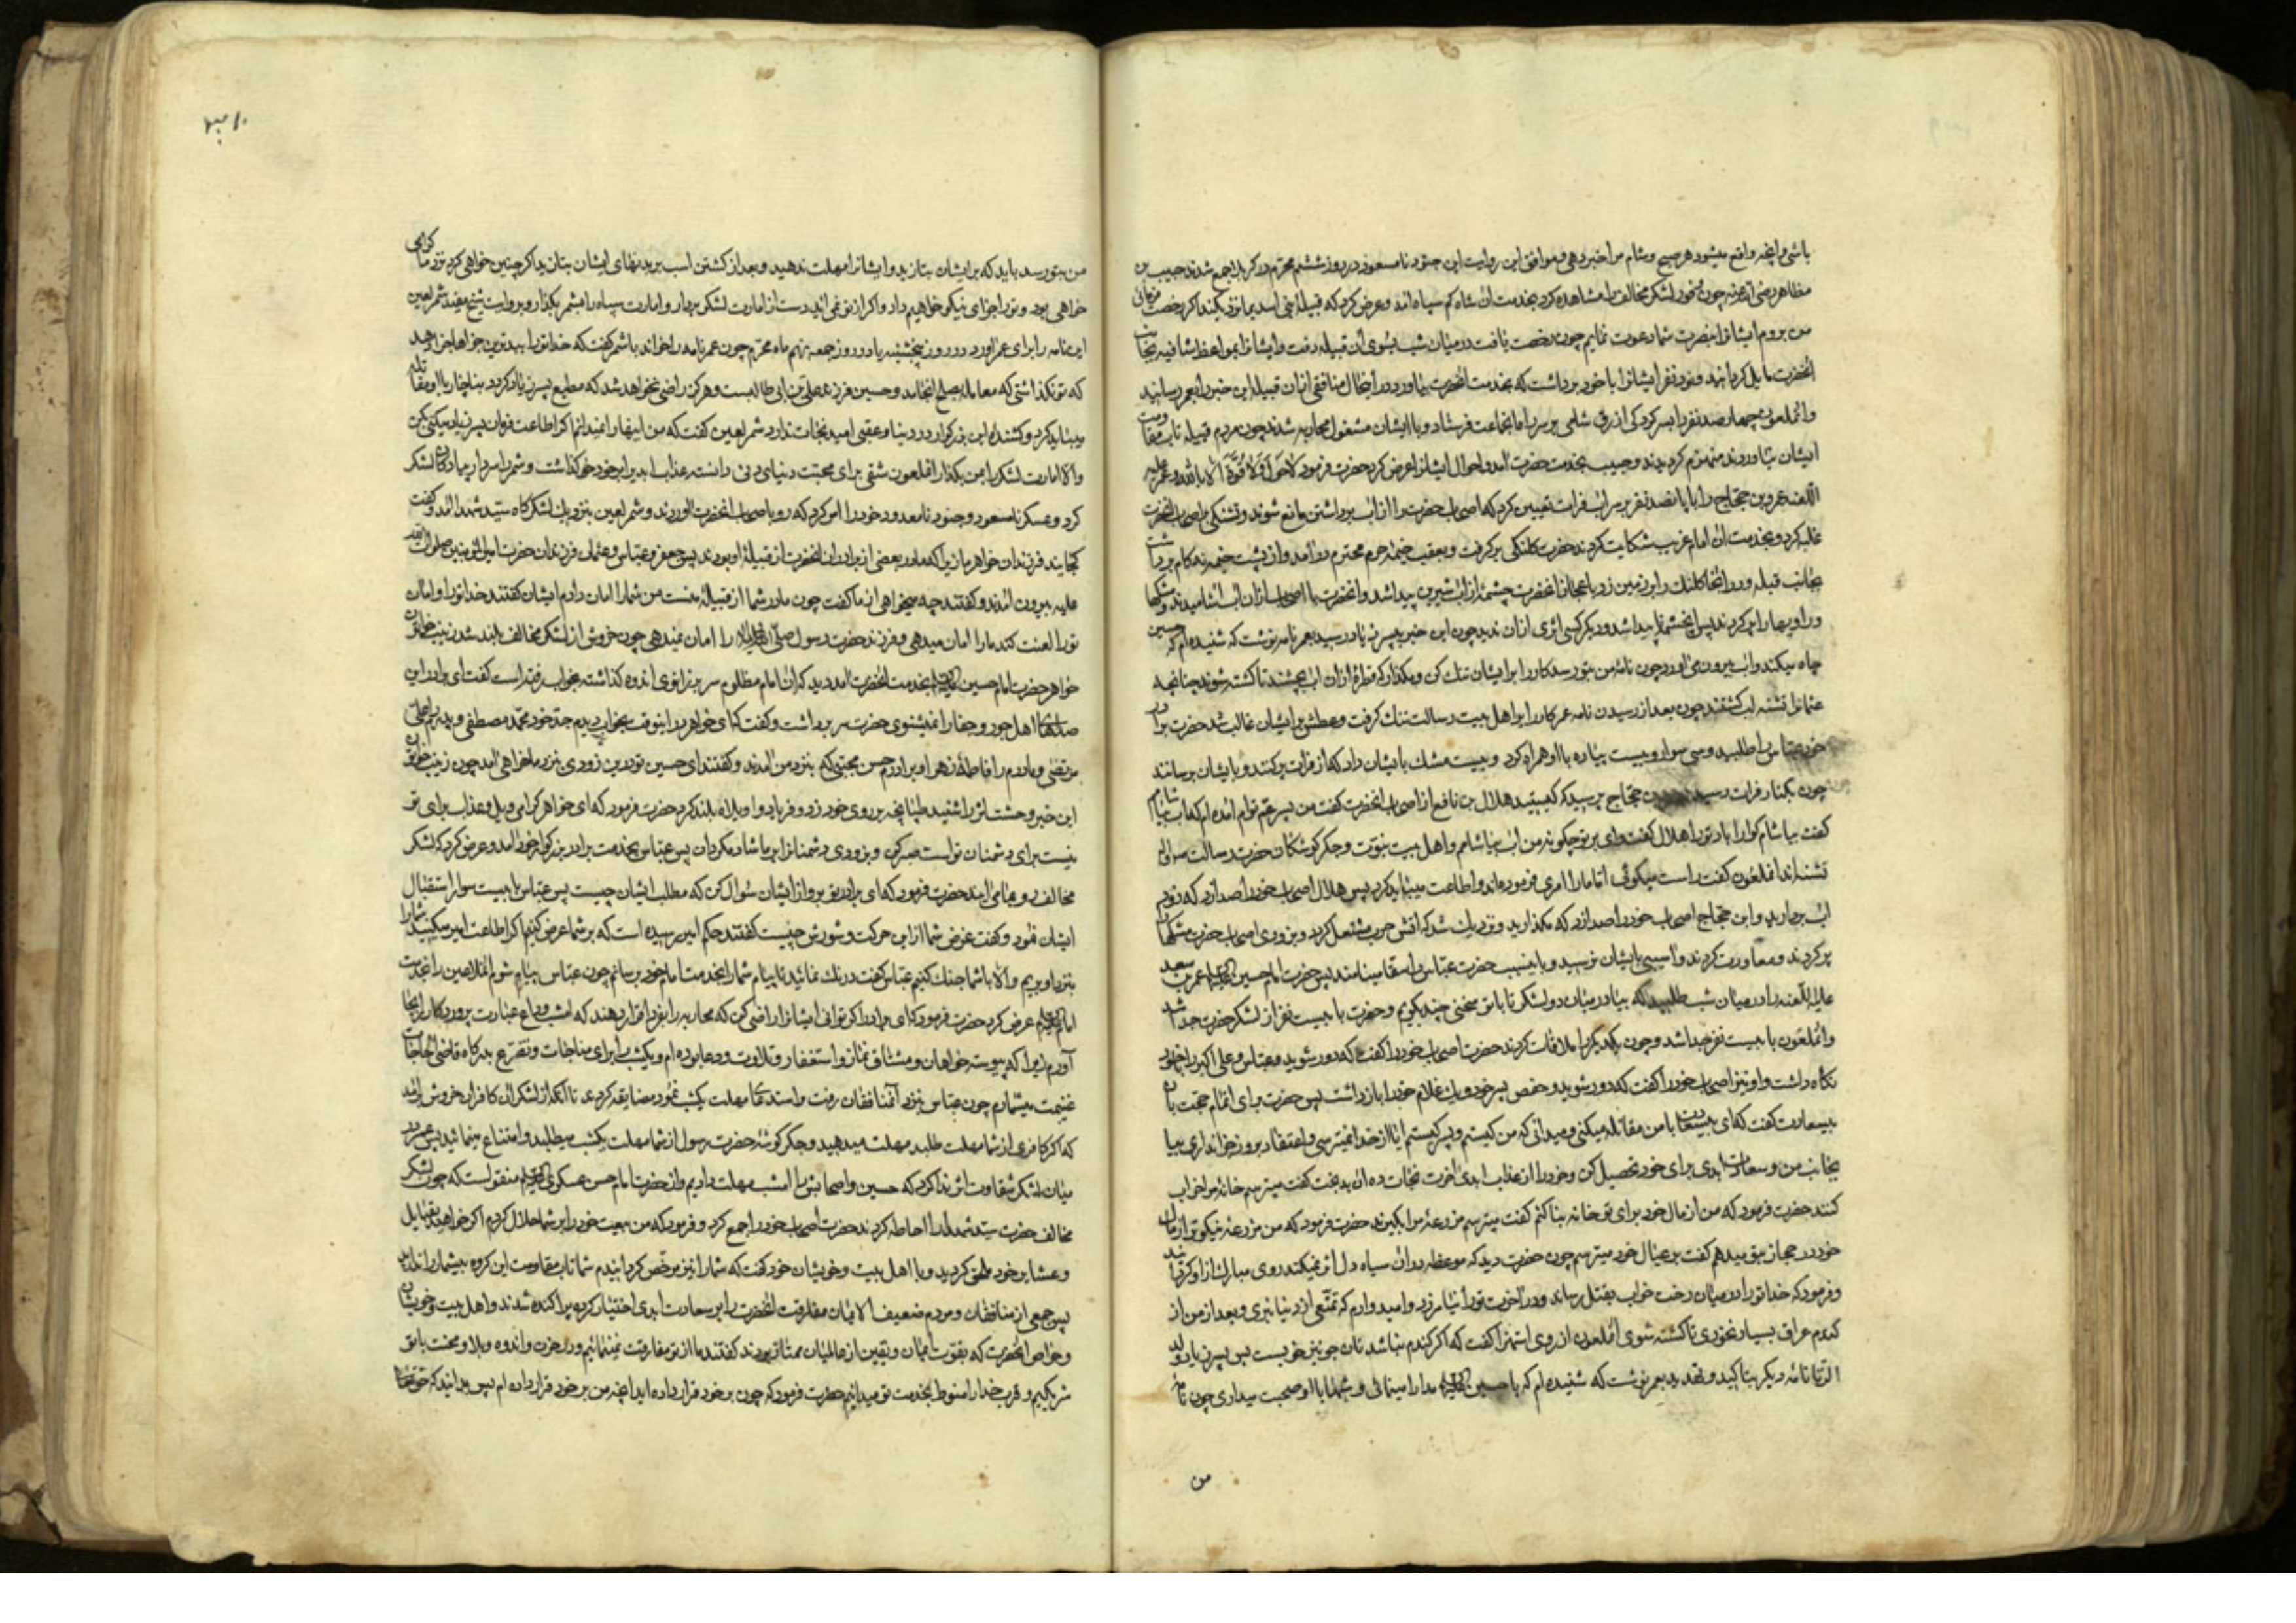 باشی و آنچه واقع میشود هر صبح و شام مرا خبر دهی و موافق این روایت این جنود نامسعود در روز ششم محرّم در کربلا جمع شدند حبیب بن
مظاهر رضی الله عنه چون وفور لشکر مخالف را مشاهده کرد بخدمت آن شاه کم سپاه آمد و عرض کرد که قبیله بنی اسد بما نزدیکند اگر رخصت فرمائی
من بروم ایشانرا بنصرت شما دعوت نمایم چون رخصت یافت در میان شب بسوی آن قبیله رفت و ایشانرا بمواعظ شافیه بجانب
آنحضرت مایل گردانید و نود نفر ایشانرا با خود برداشت که بخدمت آنحضرت بیاورد در آنحال منافقی از آن قبیله این خبر را بعمر رسانید
و آنملعون چهار صد نفر را بسرکردگی ازرق شامی بر سر راه آنجماعت فرستاد و با ایشان مشغول محاربه شدند چون مردم قبیله تاب مقاومت
ایشان نیاوردند منهزم گردیدند و حبیب بخدمت حضرت آمد و احوال ایشانرا عرض کرد حضرت فرمود لا حول ولا قوّة الا بالله و عمر علیه
اللعنه عمرو بن حجاج را با پانصد نفر بر سر آب فرات تعیین کرد که اصحاب حضرت را از آب برداشتن مانع شوند و تشنگی بر اصحاب آنحضرت
غلبه کرد و بخدمت آن امام غریب شکایت کردند حضرت کلنگی بر گرفت و بعقب خیمهٔ حرم محترم در آمد و از پشت خیمه نه گام برداشت
بجانب قبله و در آنجا کلنگ را بر زمین زد باعجاز آنحضرت چشمهٔ از آب شیرین پیدا شد و آنحضرت با اصحاب از آن آب آشامیدند و مشکها
و راویها را پر کردند پس آن چشمه ناپیدا شد و دیگر کسی اثری از آن ندید چون این خبر بپسر زیاد رسید بعمر نامه نوشت که شنیده‌ام که حسین
چاه میکند و آب بیرون می آورد چون نامهٔ من بتو رسد کار را بر ایشان تنگ کن و مگذار که قطرهٔ از آن آب بچشند تا کشته شوند چنانچه
عثمانرا تشنه لب کشتند چون بعد از رسیدن نامه عمر کار را بر اهل بیت رسالت تنگ گرفت و عطش بر ایشان غالب شد حضرت برادر
خود عباس را طلبید و سی سوار و بیست پیاده با او همراه کرد و بیست مشک بایشان داد که از فرات پر کنند و بایشان برسانند
چون بکنار فرات رسیدند بن حجاج پرسید که کیستید هلال بن نافع از اصحاب آنحضرت گفت من پسر عم توام آمده‌ام که آب بیاشامم
گفت بیاشام گوارا باد ترا هلال گفت وای بر تو چگونه من آب بیاشامم و اهل بیت نبوّت و جگر گوشگان حضرت رسالت
تشنه‌اند آنملعون گفت راست میگوئی اما ما را امری فرموده‌اند و اطاعت میباید کرد پس هلال اصحاب خود را صدا زد که زود
آب بردارید و ابن حجاج اصحاب خود را صدا زد که مگذارید و نزدیک شد که آتش حرب مشتعل گردد و بزودی اصحاب حضرت مشکها
پر کردند و معاودت کردند و آسیبی بایشان نرسید و باینسبب حضرت عباس را سقا مینامند پس حضرت امام حسین علیه السلام عمر بن سعد
علیه اللعنه را در میان شب طلبید که بیا در میان دو لشکر تا با تو سخنی چند بگویم و حضرت با بیست نفر از لشکر حضرت جدا شد
و آنملعون با بیست نفر جدا شد و چون یکدیگر را ملاقات کردند حضرت اصحاب خود را گفت که دور شوید و عباس و علی اکبر را با خود
نگاه داشت و او نیز اصحاب خود را گفت که دور شوید و حفص پسر خود و یک غلام خود را باز داشت پس حضرت برای اتمام حجت با آن
بیسعادت گفت که ای بیسعادت با من مقاتله میکنی و میدانی که من کیستم و پسر کیستم آیا از خدا نمیترسی و اعتقاد بروز جزا نداری بیا
بجانب من و سعادت ابدی برای خود تحصیل کن و خود را از عذاب ابدی آخرت نجات ده آن بدبخت گفت میترسم خانهٔ مرا خراب
کنند حضرت فرمود که من از مال خود برای تو خانه بنا کنم گفت میترسم مزرعهٔ مرا بگیرند حضرت فرمود که من مزرعهٔ نیکوتر از مال
خود در حجاز بتو میدهم گفت بر عیال خود میترسم چون حضرت دید که موعظه در آن سیاه دل اثر نمیکند روی مبارک از او گردانید
و فرمود که خدا ترا در میان رخت خواب بقتل رساند و در آخرت ترا نیامرزد و امیدوارم که تمتّعی از دنیا نبری و بعد از من از
گندم عراق بسیار نخوری تا کشته شوی آنملعون از روی استهزا گفت که اگر گندم نباشد نان جو نیز خوبست پس پسر زیاد ولد
الزنا نامهٔ دیگر بتأکید و تهدید بعمر نوشت که شنیده‌ام که با حسین علیه السلام مدارا مینمائی و شبها با او صحبت میداری چون نامهٔ
من
من بتو رسد باید که بر ایشان بتازید و ایشانرا مهلت ندهید و بعد از کشتن اسب بر بدنهای ایشان بتازید اگر چنین خواهی کرد نزد ما گرامی
خواهی بود و ترا جزای نیکو خواهیم داد و اگر از تو نمی‌آید دست از امارت لشکر بردار و امارت سپاه را بشمر بگذار و بروایت شیخ مفید شمر لعین
این نامه را برای عمر آورد در روز پنجشنبه یا در روز جمعه نهم ماه محرّم چون عمر نامه را خواند با شمر گفت که خدا ترا ببدترین جزاها جزا دهد
که تو نگذاشتی که معامله بصلح انجامد و حسین فرزند علی بن ابی طالبست و هرگز راضی نخواهد شد که مطیع پسر زیاد گردد بناچار با او مقاتله
میباید کرد و کشندهٔ این بزرگوار در دنیا و عقبی امید نجات ندارد شمر لعین گفت که من اینها را نمیدانم اگر اطاعت فرمان پسر زیاد میکنی بکن
والا امارت لشکر را بمن بگذار آنملعون شقی برای محبّت دنیای دنی دانسته عذاب ابد برای خود خود گذاشت و شمر را سردار پیادگان لشکر
کرد و عسکر نامسعود و جنود نامعدود خود را امر کرد که رو باصحاب آنحضرت آوردند و شمر لعین بنزدیک لشکرگاه سید شهدا آمد و گفت
کجایند فرزندان خواهر ما زیرا که مادر بعضی از برادران آنحضرت از قبیلهٔ او بودند پس جعفر و عباس و عثمان فرزندان حضرت امیر المؤمنین صلوات الله
علیه بیرون آمدند و گفتند چه میخواهی از ما گفت چون مادر شما از قبیلهٔ منست من شما را امان دادم ایشان گفتند خدا ترا و امان
ترا لعنت کند ما را امان میدهی و فرزند حضرت رسول صلی الله علیه و آله را امان نمیدهی چون خروش از لشکر مخالف بلند شد زینب خاتون
خواهر حضرت امام حسین علیه السلام بخدمت آنحضرت آمد دید که آن امام مظلوم سر بزانوی اندوه گذاشته بخواب رفته است گفت ای برادر این
صداهای اهل جور و جفا را نمیشنوی حضرت سر برداشت و گفت که ای خواهر در اینوقت بخواب دیدم جدّ خود محمّد مصطفی و پدرم علی
مرتضی و مادرم را فاطمهٔ زهرا و برادرم حسن مجتبی که بنزد من آمدند و گفتند ای حسین تو در این زودی بنزد ما خواهی آمد چون زینب خاتون
این خبر وحشت اثر را شنید طپانچه بر روی خود زد و فریاد واویلاه بلند کرد حضرت فرمود که ای خواهر گرامی ویل و عذاب برای تو
نیست برای دشمنان تو است صبر کن و بزودی دشمنانرا بر ما شاد مگردان پس عباس بخدمت برادر بزرگوار خود آمد و عرض کرد که لشکر
مخالف رو بما می‌آیند حضرت فرمود که ای برادر تو برو از ایشان سؤال کن که مطلب ایشان چیست پس عباس با بیست سوار استقبال
ایشان نمود و گفت غرض شما از این حرکت و شورش چیست گفتند حکم امیر رسیده است که بر شما عرض کنیم اگر اطاعت امیر میکنید شما را
بنزد او بریم والا با شما جنگ کنیم عباس گفت درنگ نمائید تا پیام شما را بخدمت امام خود برسانم چون عباس پیام شوم آنملاعین را بخدمت
امام علیه السلام عرض کرد حضرت فرمود که ای برادر اگر توانی ایشانرا راضی کن که محاربه را بفردا قرار دهند که امشب وداع عبادت پروردگار را بجا
آورم زیرا که پیوسته خواهان و مشتاق نماز و استغفار و تلاوت و دعا بوده‌ام و یکشب را برای مناجات و تضرّع بدرگاه قاضی الحاجات
غنیمت میشمارم چون عباس بنزد آنمنافقان رفت و استدعای مهلت یکشب نمود مضایقه کردند تا آنکه از لشکر آن کافران خروش برآمد
که اگر کافری از شما مهلت طلبد مهلت میدهید و جگر گوشهٔ حضرت رسول از شما مهلت یکشب میطلبد و امتناع مینمائید پس عمر در
میان لشکر شقاوت اثر ندا کرد که حسین و اصحابش را امشب مهلت دادیم و از حضرت امام حسن عسکری علیه السلام منقولست که چون لشکر
مخالف حضرت سید شهدا را احاطه کردند حضرت اصحاب خود را جمع کرد و فرمود که من بیعت خود را بر شما حلال کردم اگر خواهید بقبایل
و عشایر خود ملحق گردید و با اهل بیت و خویشان خود گفت که شما را نیز مرخّص گردانیدم شما تاب مقاومت این گروه بیشمار را ندارید
پس جمعی از منافقان و مردم ضعیف الایمان مفارقت آنحضرت را بر سعادت ابدی اختیار کرده پراکنده شدند و اهل بیت و خویشان
و خواص آنحضرت که بقوّت ایمان و یقین از عالمیان ممتاز بودند گفتند ما از تو مفارقت نمینمائیم و در حزن و اندوه و بلا و محنت با تو
شریکیم و قرب خدا را منوط بخدمت تو میدانیم حضرت فرمود که چون بر خود قرار داده‌اید آنچه من بر خود قرار داده‌ام پس بدانید که حق تعالی